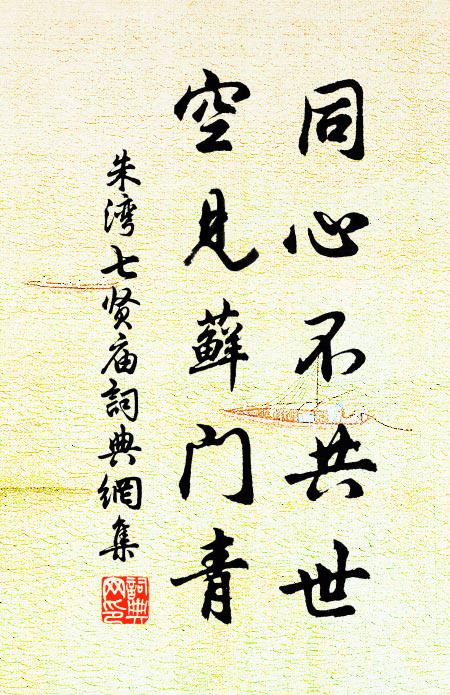 同心不共世
空见蘚门青
朱湾七贤庙詞典網集
詞典网印